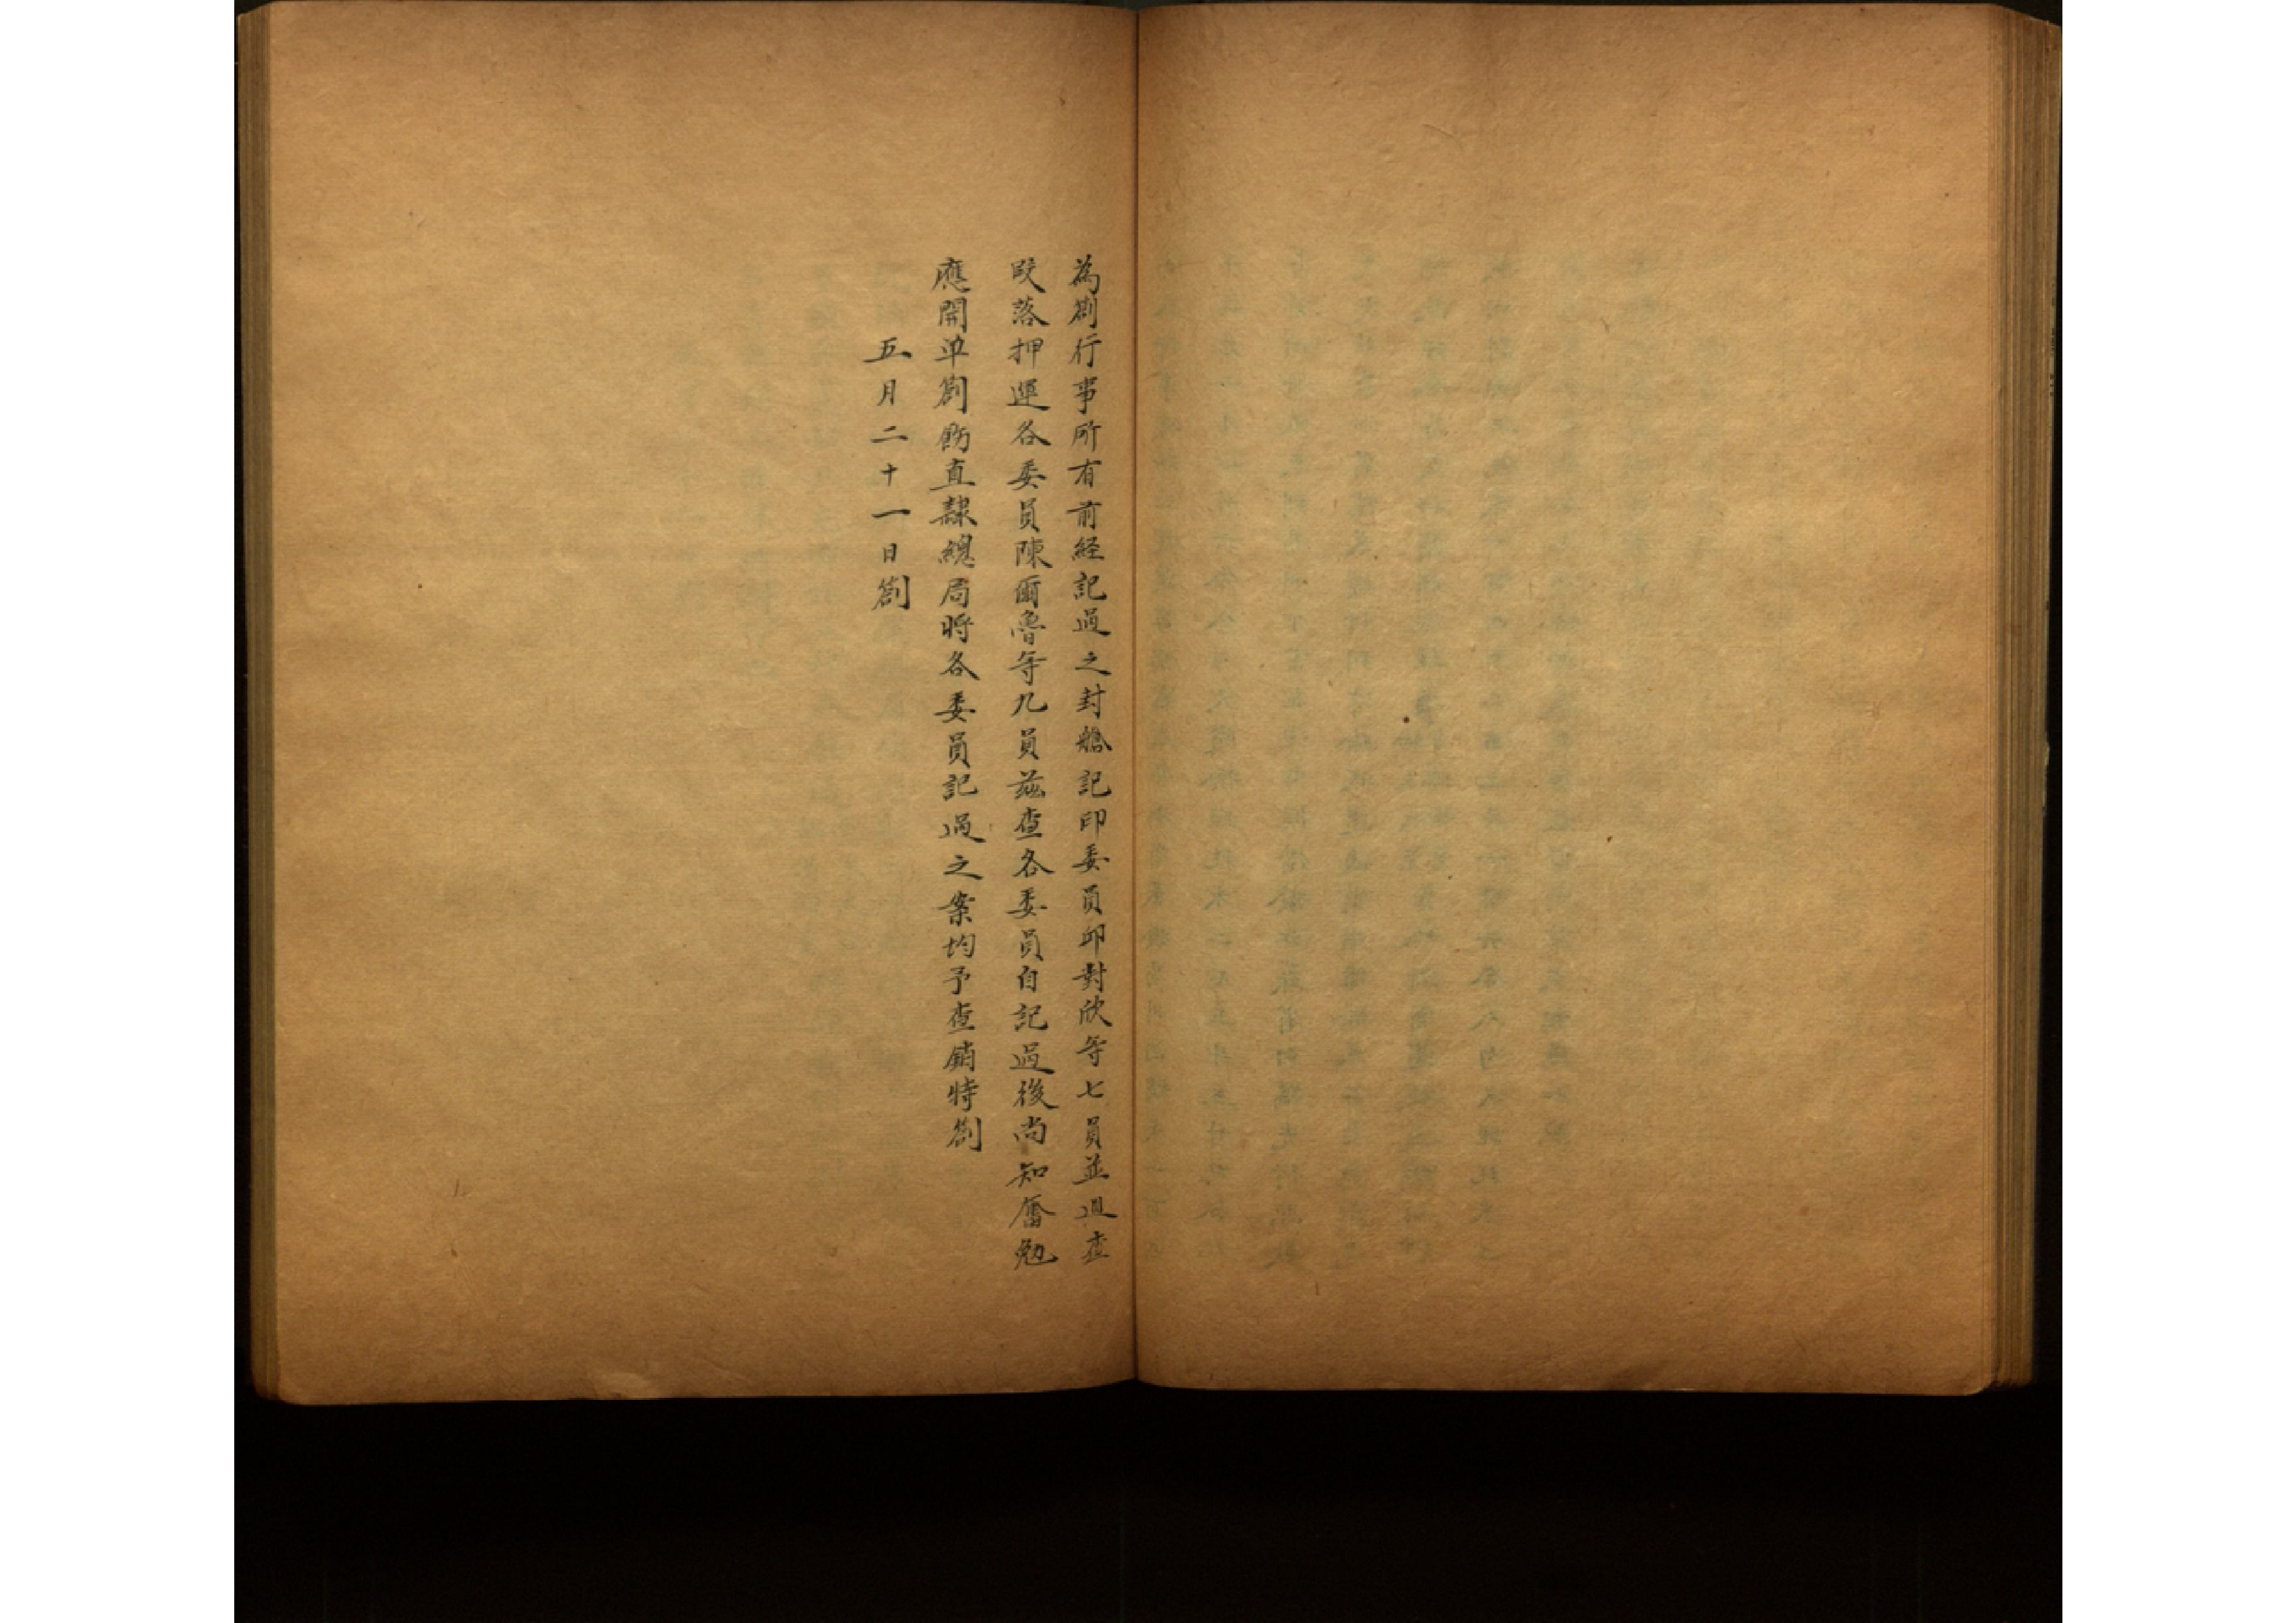 為劄行事所有前經記過之封艙記印委員邱對欣等七員並迴查
咬落押運各委員陳爾魯等九員茲查各委員自記過後尚知奮勉
應開单劄飭直隸總局將各委員記過之案均予查銷特劄
五月二十一日劄